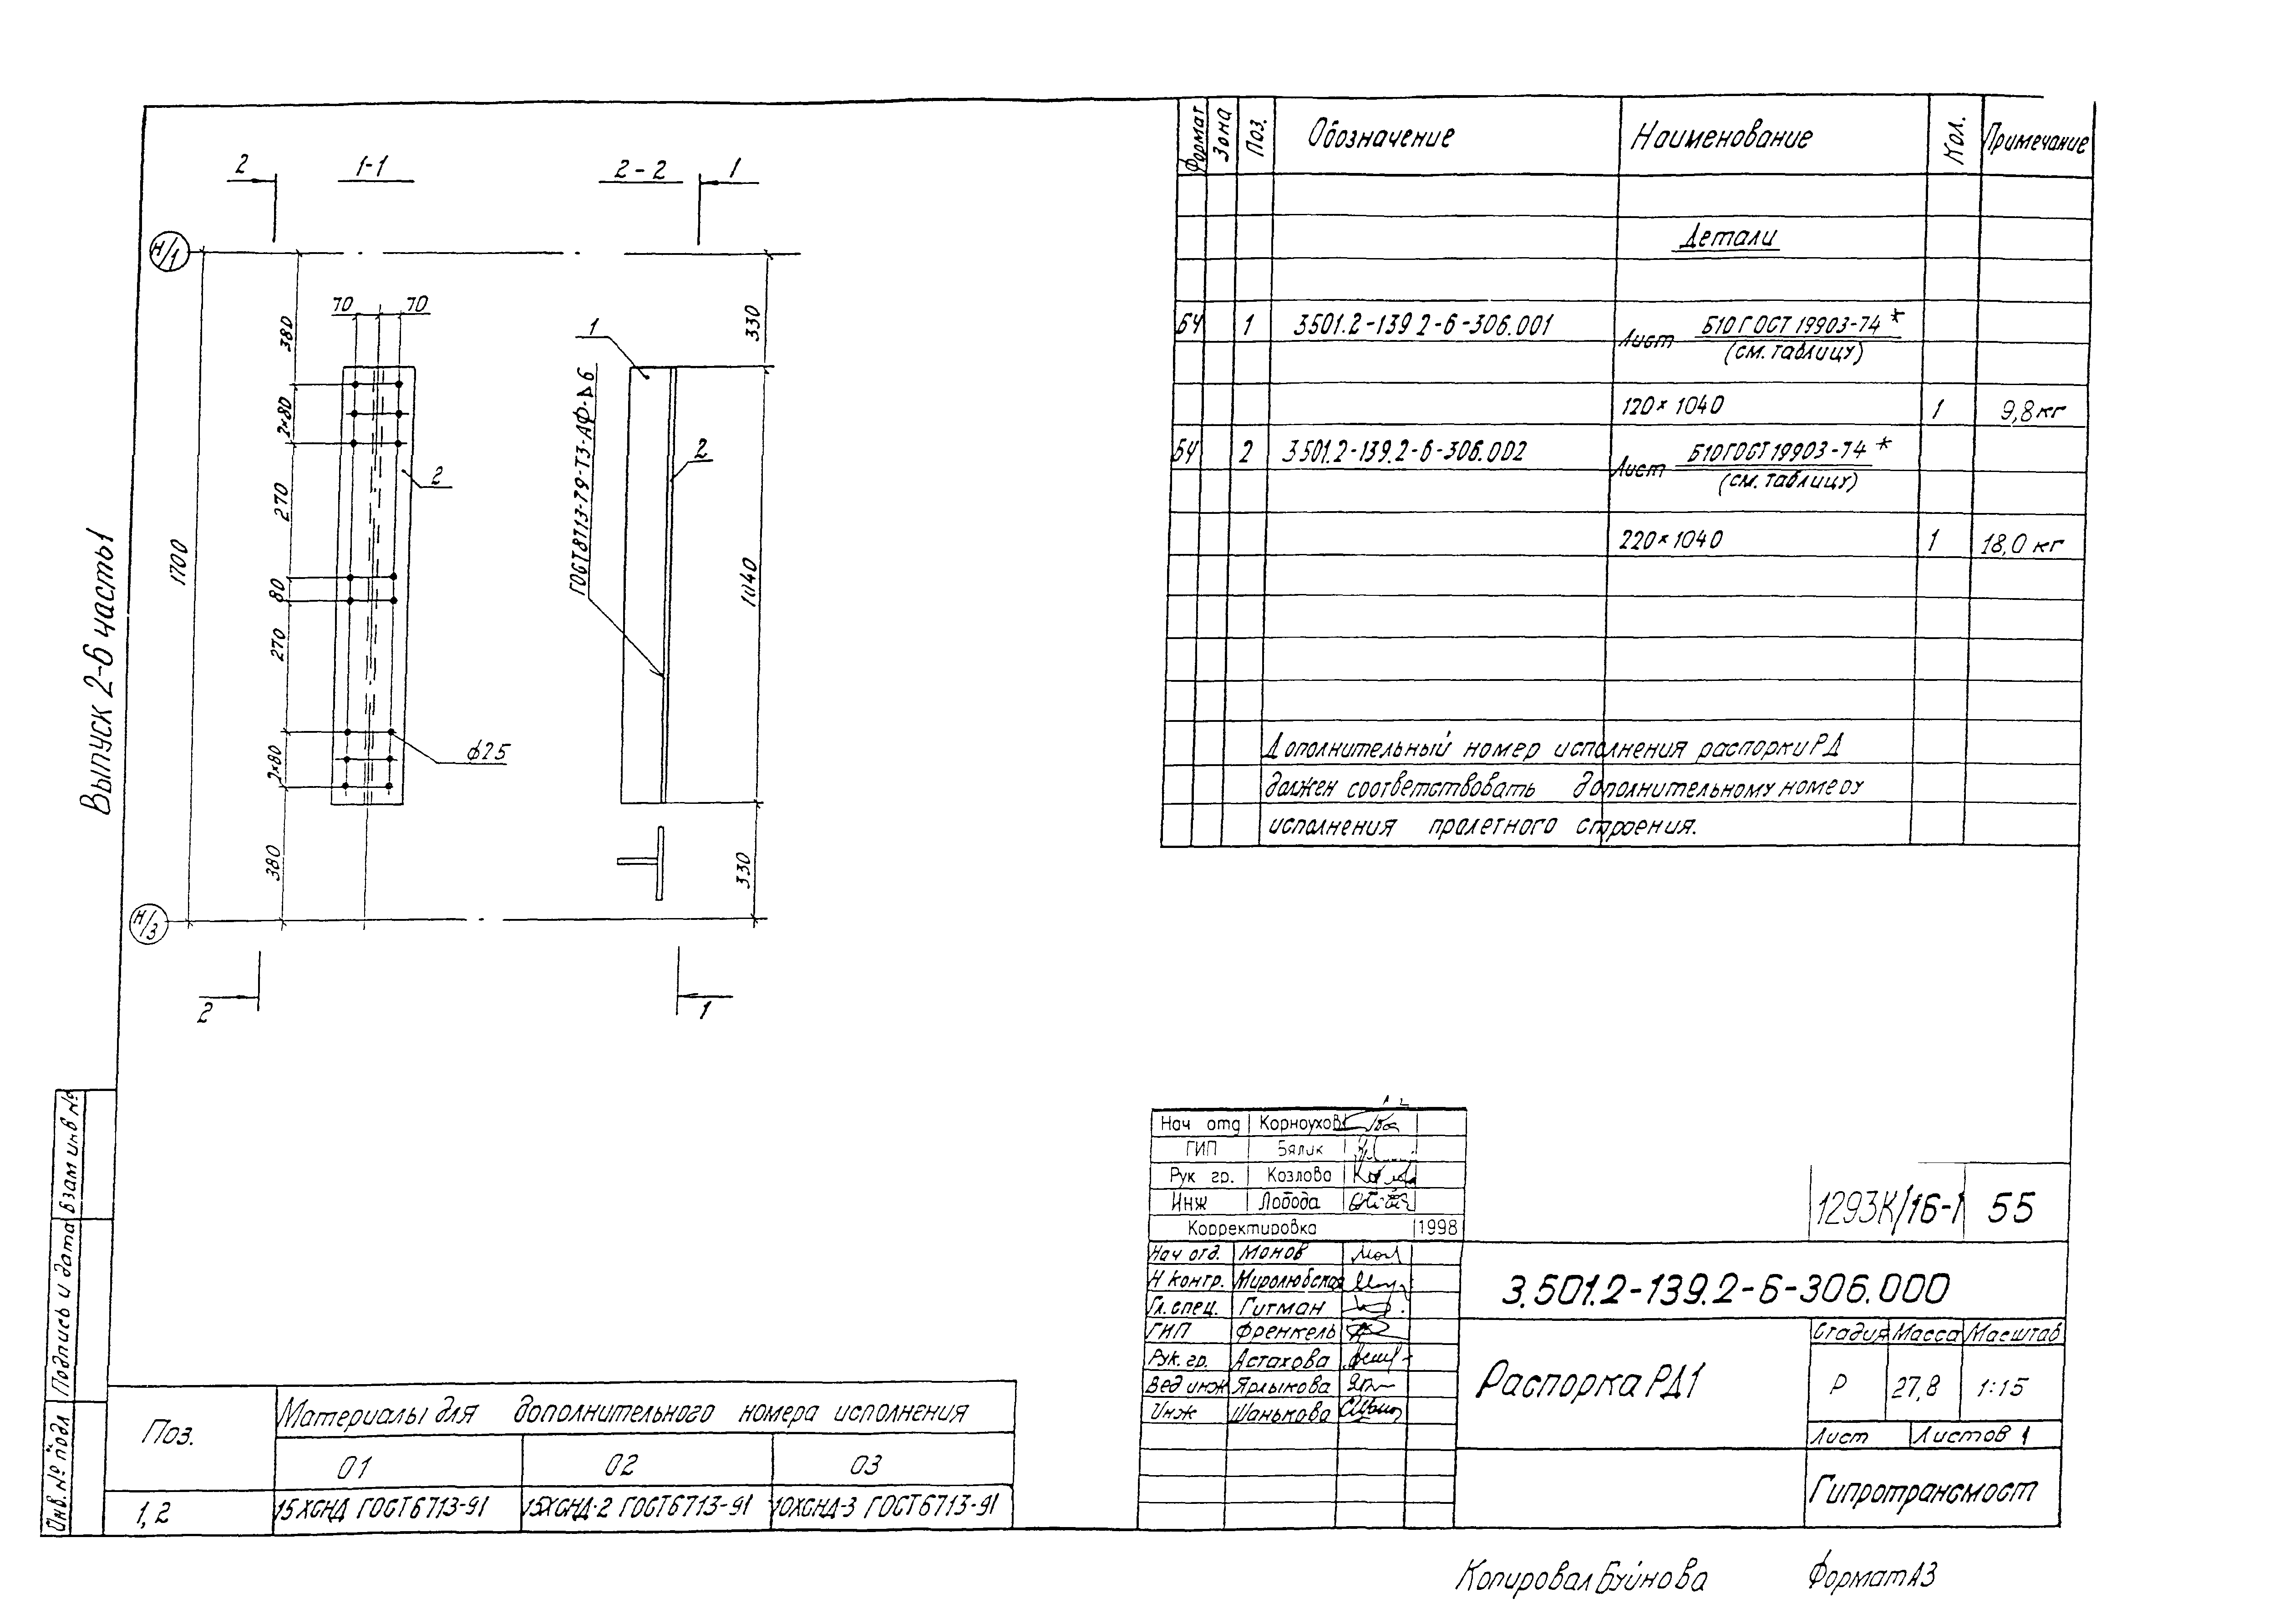 Выпуск 2-6 часть 1
2
1-1
2-2
1
Н/1
70
70
380
2×80
270
80
270
2×80
380
1700
2
ф25
1
2
ГОСТ 8713-79-Т3-АФ-⊿6
330
1040
330
Н/3
2
1
Формат
Зона
Поз.
Обозначение
Наименование
Кол.
Примечание
Детали
БЧ 1 3501.2-139 2-6-306.001 Лист Б10 ГОСТ 19903-74*
(см. таблицу)
120×1040 1 9,8 кг
БЧ 2 3.501.2-139.2-6-306.002 Лист Б10 ГОСТ 19903-74*
(см. таблицу)
220×1040 1 18,0 кг
Дополнительный номер исполнения распорки РД
должен соответствовать дополнительному номеру
исполнения пролетного строения.
Нач отд Корноухов
ГИП Бялик
Рук гр. Козлова
Инж Лобода
Корректировка 1998
Нач отд. Монов
Н контр. Миролюбская
Гл. спец. Гитман
ГИП Френкель
Рук. гр. Астахова
Вед инж Ярлыкова
Инж Шанькова
1293К/16-1 55
3.501.2-139.2-6-306.000
Распорка РД1
Стадия Масса Масштаб
Р 27,8 1:15
Лист Листов 1
Гипротрансмост
Поз. Материалы для дополнительного номера исполнения
01 02 03
1, 2 15ХСНД ГОСТ 6713-91 15ХСНД-2 ГОСТ 6713-91 10ХСНД-3 ГОСТ 6713-91
Взам инв №
Подпись и дата
Инв. № подл
Копировал Буйнова Формат А3